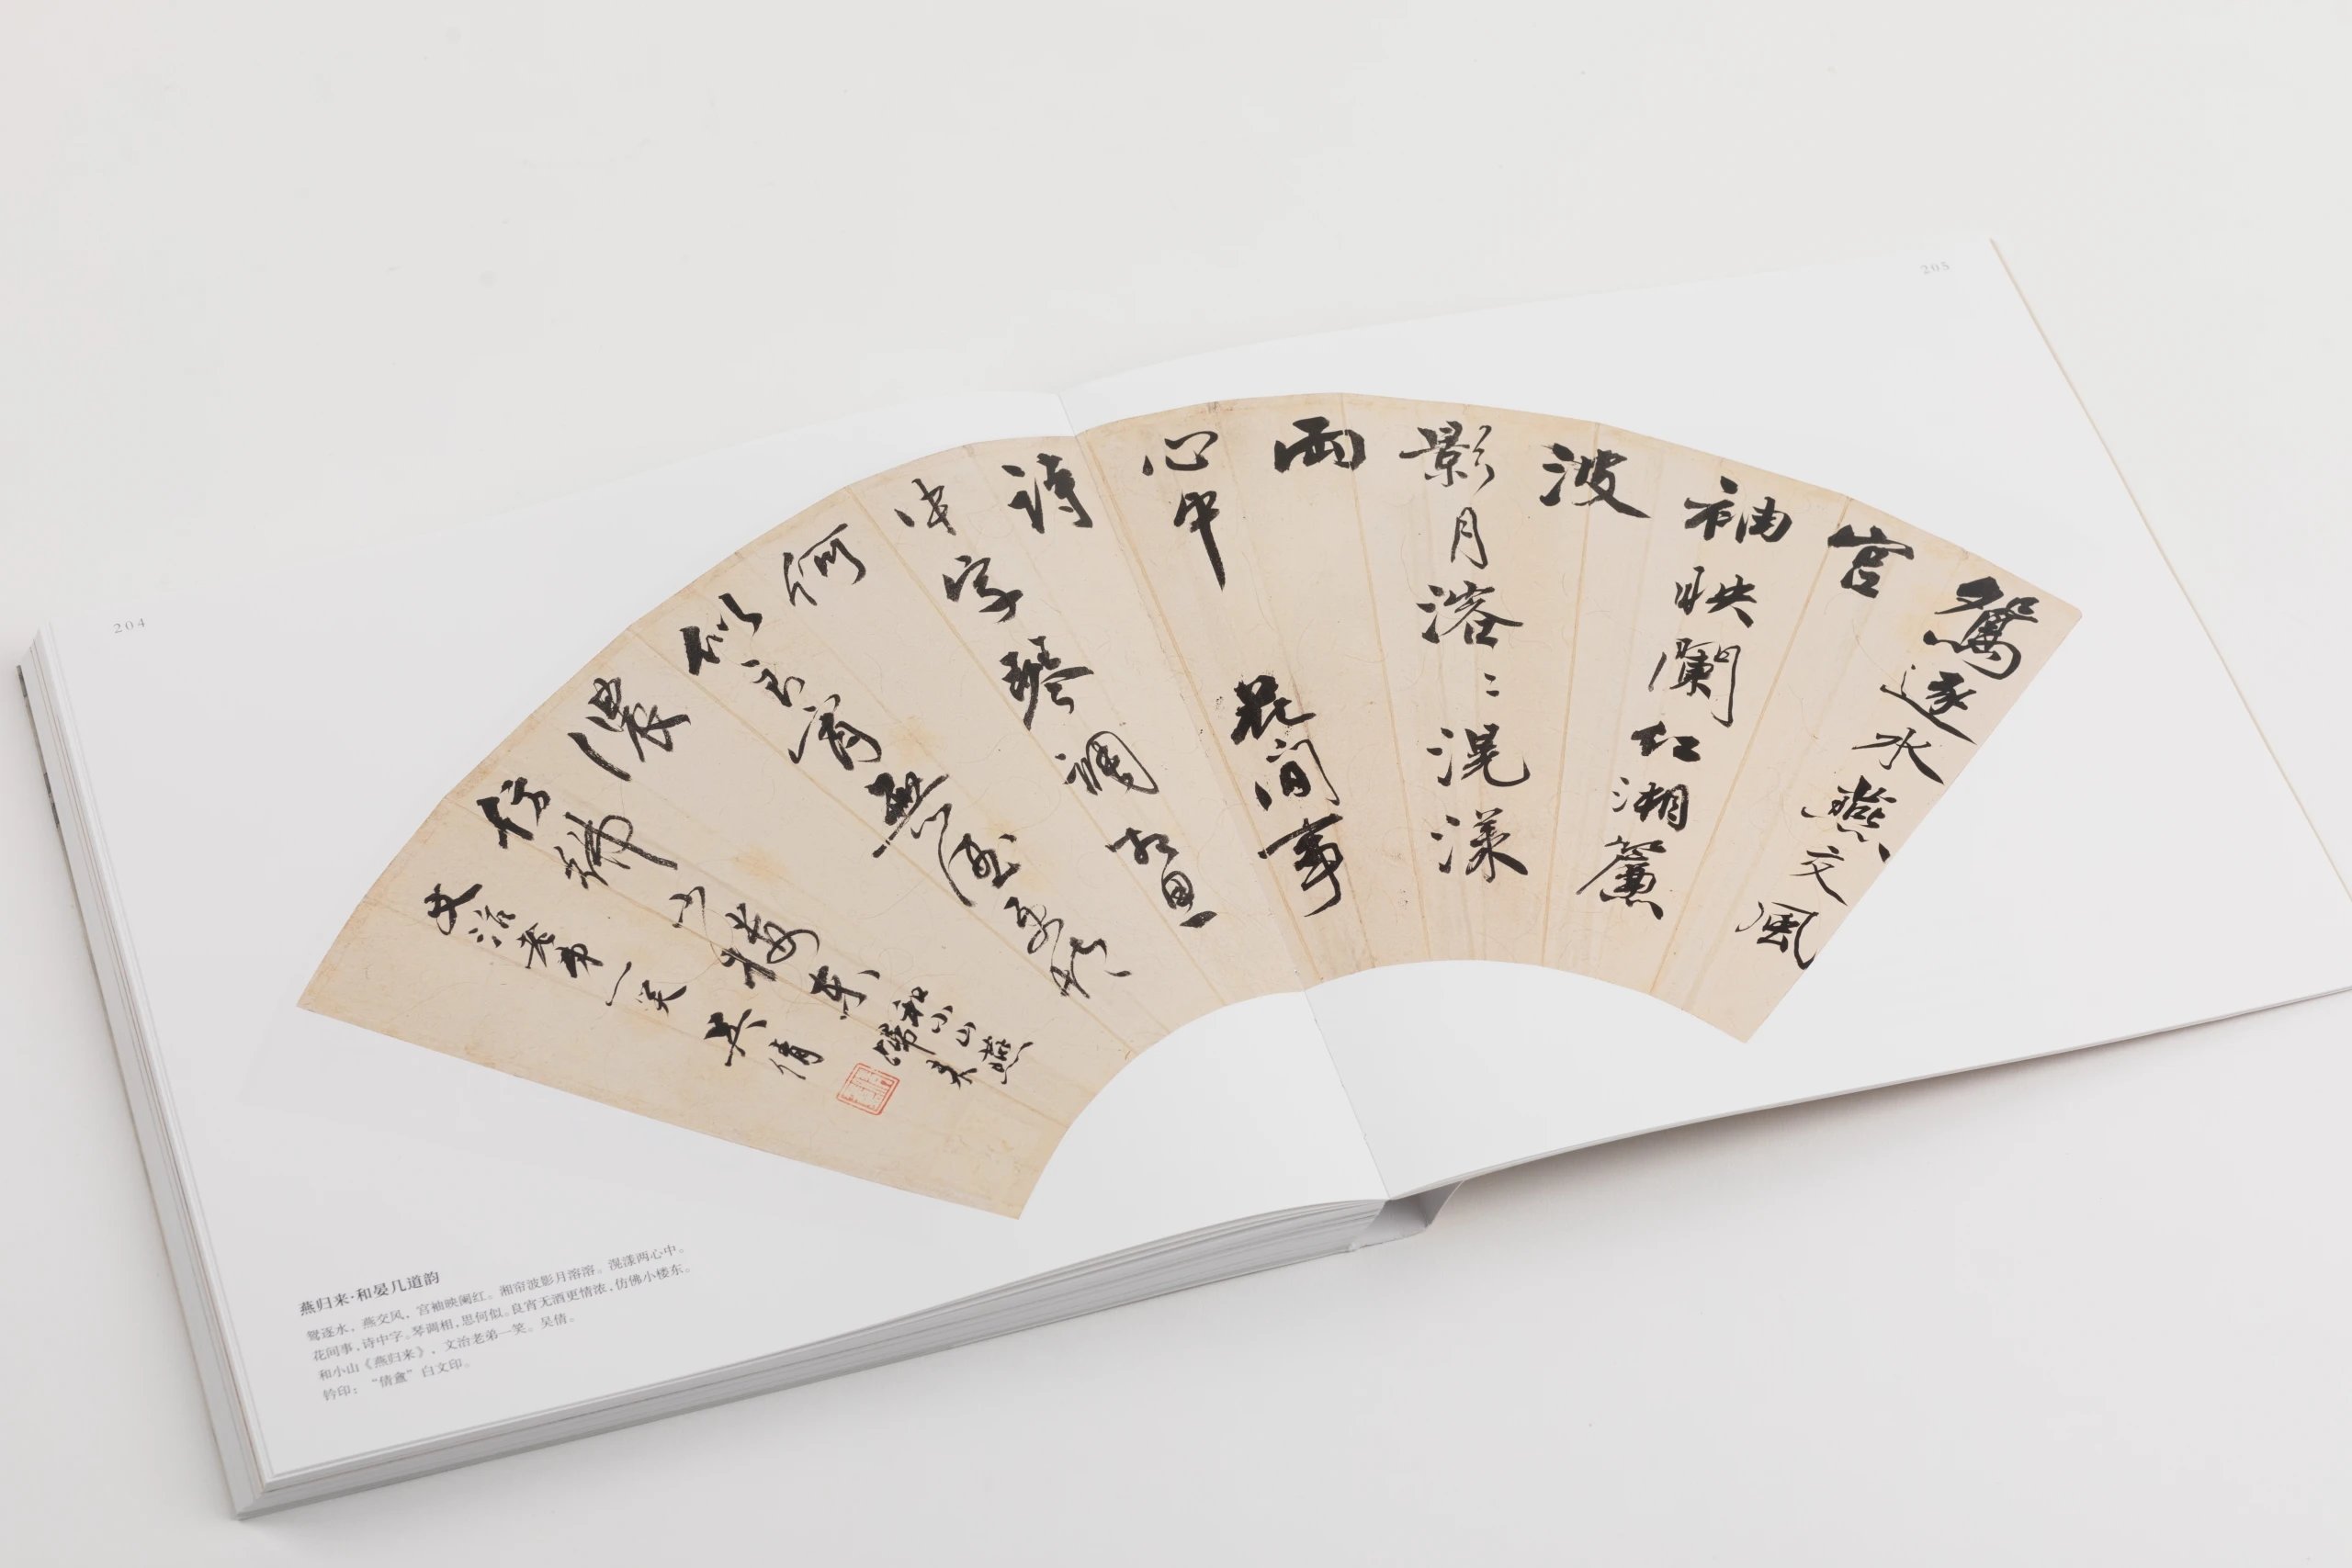 204
205
鴛逐水燕交風
宮
袖映闌紅湘簾
波
影月溶〻滉漾
兩
花間事
心中
詩
中字琴調相思
何
似良宵無酒更情
濃
仿佛小樓東
和小山燕
歸来
文治老弟一笑
吴倩
燕归来·和晏几道韵
鸳逐水，燕交风，宫袖映阑红。湘帘波影月溶溶。滉漾两心中。
花间事，诗中字。琴调相，思何似。良宵无酒更情浓，仿佛小楼东。
和小山《燕归来》，文治老弟一笑。吴倩。
钤印：“倩盦”白文印。